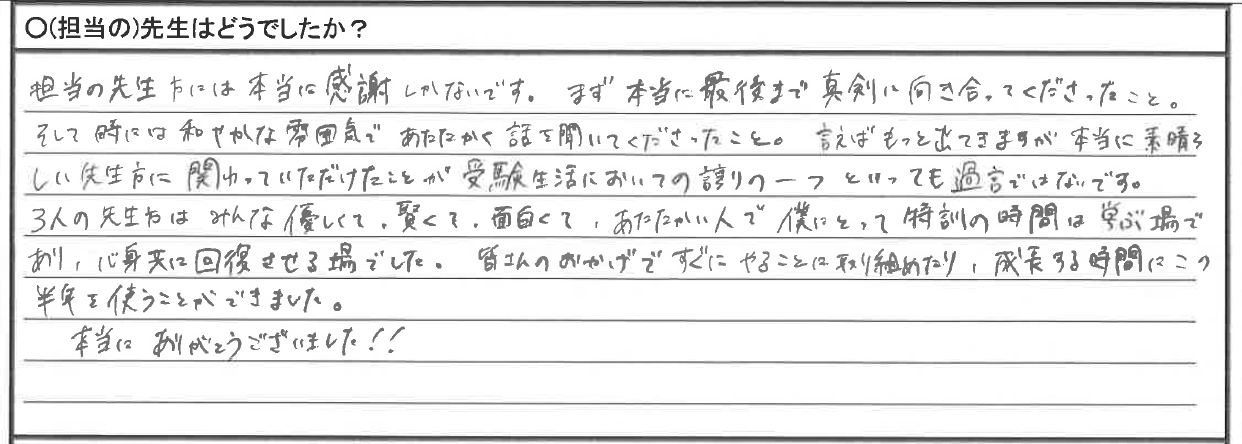 〇(担当の)先生はどうでしたか？
担当の先生方には本当に感謝しかないです。まず本当に最後まで真剣に向き合ってくださったこと。
そして時には和やかな雰囲気であたたかく話を聞いてくださったこと。言えばもっと出てきますが本当に素晴ら
しい先生方に関わっていただけたことが受験生活においての誇りの一つといっても過言ではないです。
3人の先生方はみんな優しくて、賢くて、面白くて、あたたかい人で僕にとって特訓の時間は学ぶ場で
あり、心身共に回復させる場でした。皆さんのおかげですぐにやることに取り組めたり、成長する時間にこの
半年を使うことができました。
本当にありがとうございました!!